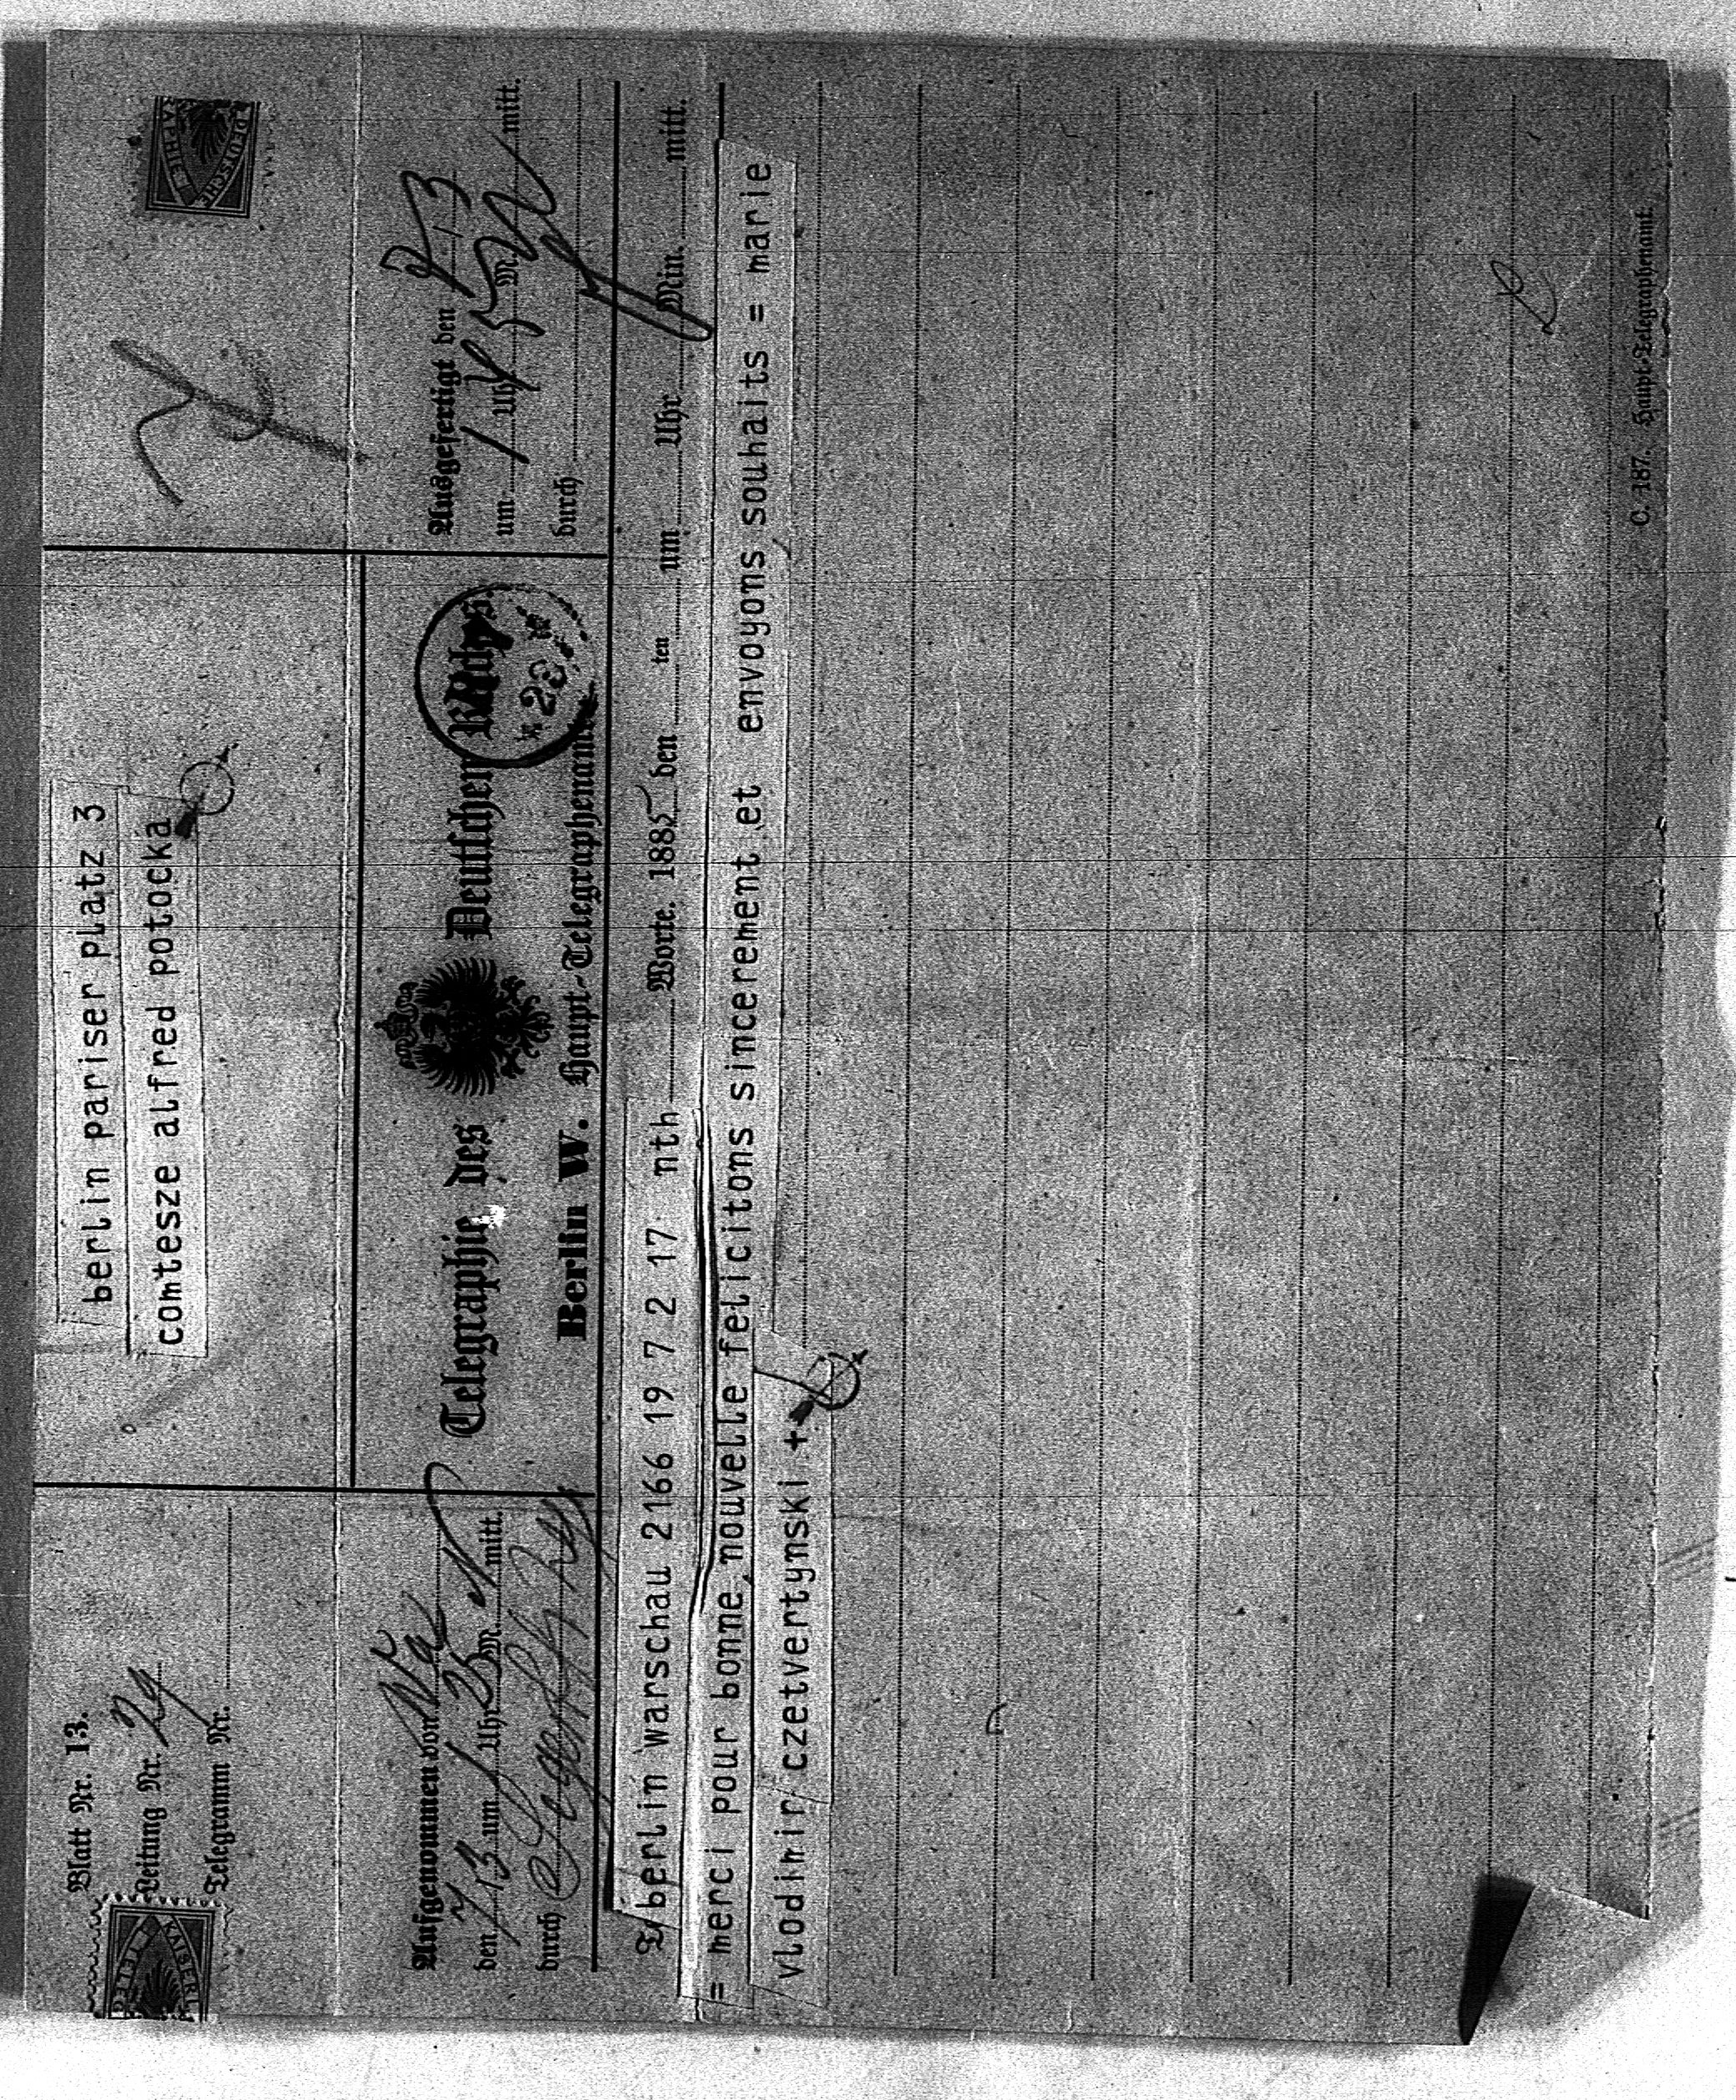 Blatt Nr. 13.
Leitung Nr. 29
Telegramm Nr.
berlin pariser platz 3
comtesze alfred potocka
DEUTSCHE
RAPHIE
KAISERL
TELEG
Aufgenommen von War
den 7/3 um 1 Uhr 25 M. N mitt.
durch
Telegraphie des Deutschen Reichs.
Berlin W. Haupt-Telegraphenamt.
Ausgefertigt den 7/3
um 1 Uhr M. mitt.
durch
T berlin warschau 2166 19 7 2 17 nth Worte. 1885 den ten um Uhr Min. mitt.
= merci pour bonne nouvelle felicitons sincerement et envoyons souhaits = marie
vlodimir czetvertynski +
C. 187. Haupt-Telegraphenamt.